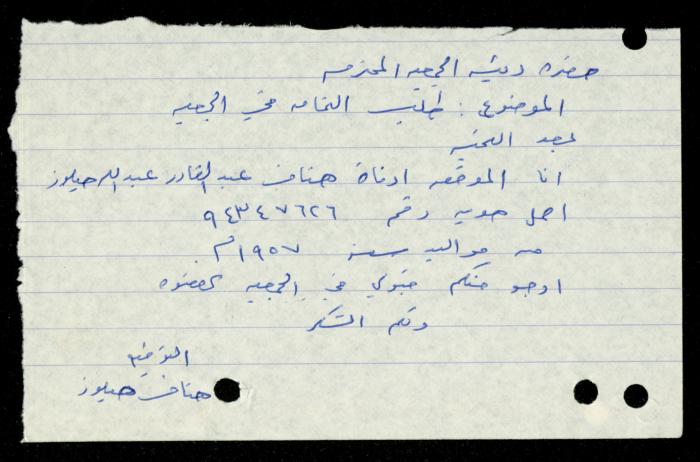 حضرة رئيسة الجمعية المحترمة
الموضوع : طلب انتماء في الجمعية
بعد التحية
انا الموقعه ادناة هناف عبد القادر عبد الله حيلوز
احمل هوية رقم ٩٤٣٤٧٦٢٦
من مواليد سنة ١٩٥٧م
ارجو منكم قبولي في الجمعية كعضوة
ولكم الشكر
التوقيع
هناف حيلوز